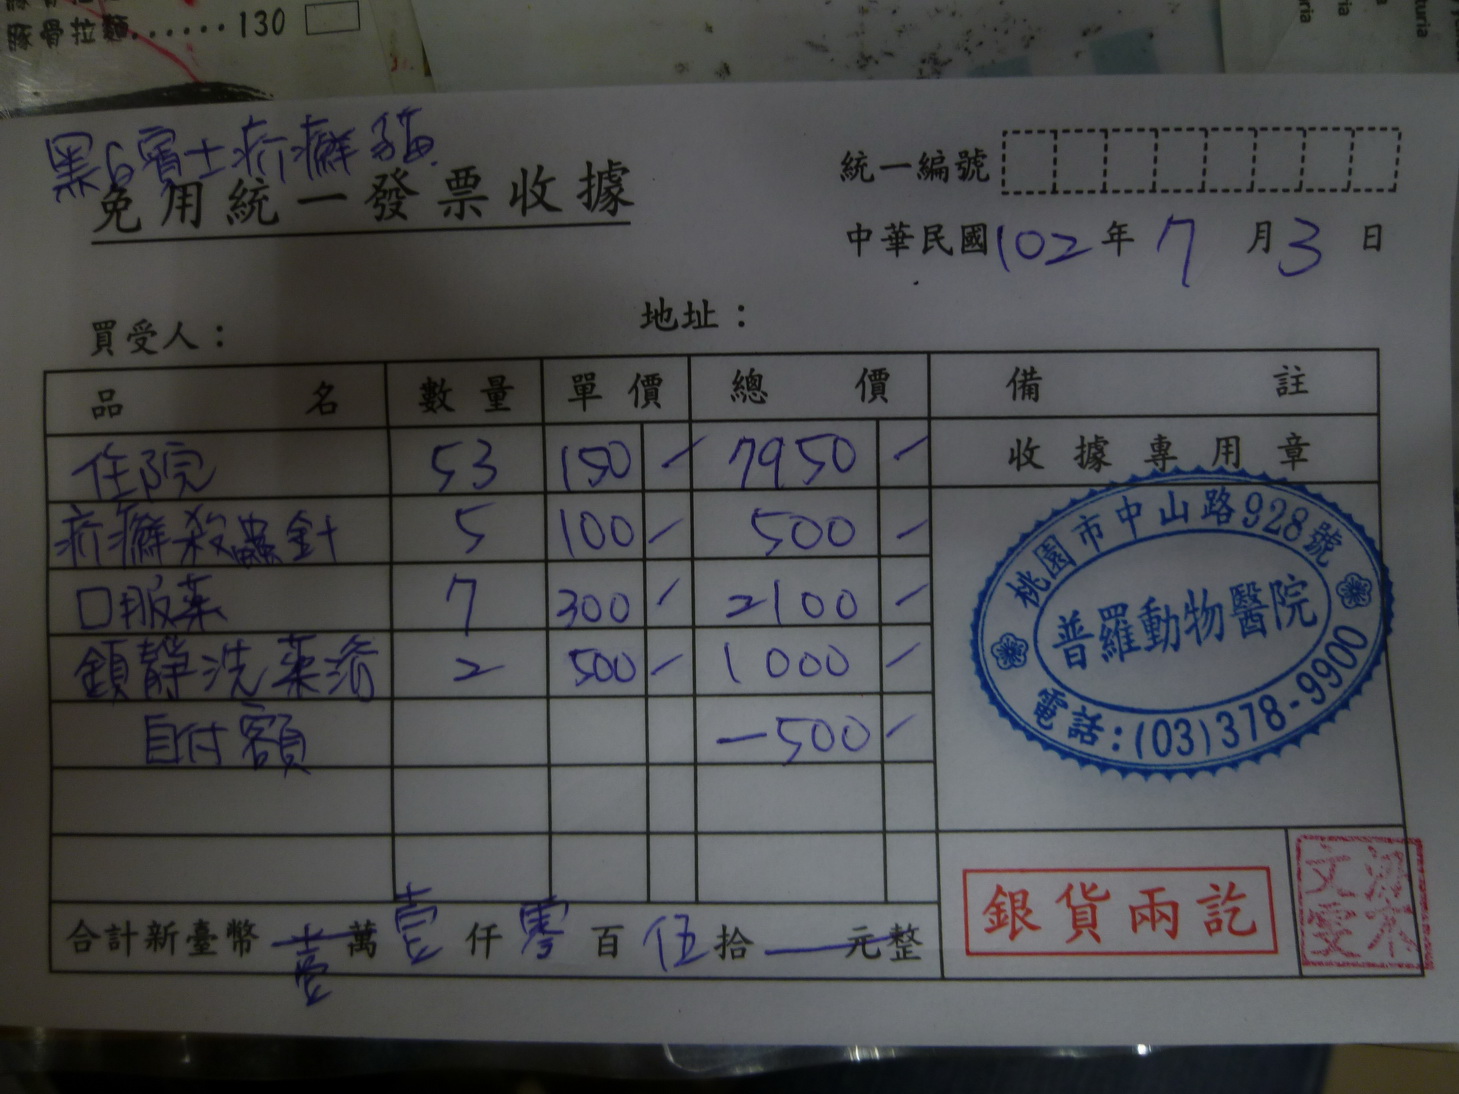 豚骨拉麵......130
黑白賓士疥癬貓
免用統一發票收據
統一編號
中華民國102年7月3日
買受人：
地址：
品名 數量 單價 總價 備註
收據專用章
住院 53 150 7950
疥癬殺蟲針 5 100 500
口服藥 7 300 2100
鎮靜洗藥浴 2 500 1000
自付額 -500
桃園市中山路928號
普羅動物醫院
電話:(03)378-9900
合計新臺幣壹萬壹仟零百伍拾元整
銀貨兩訖